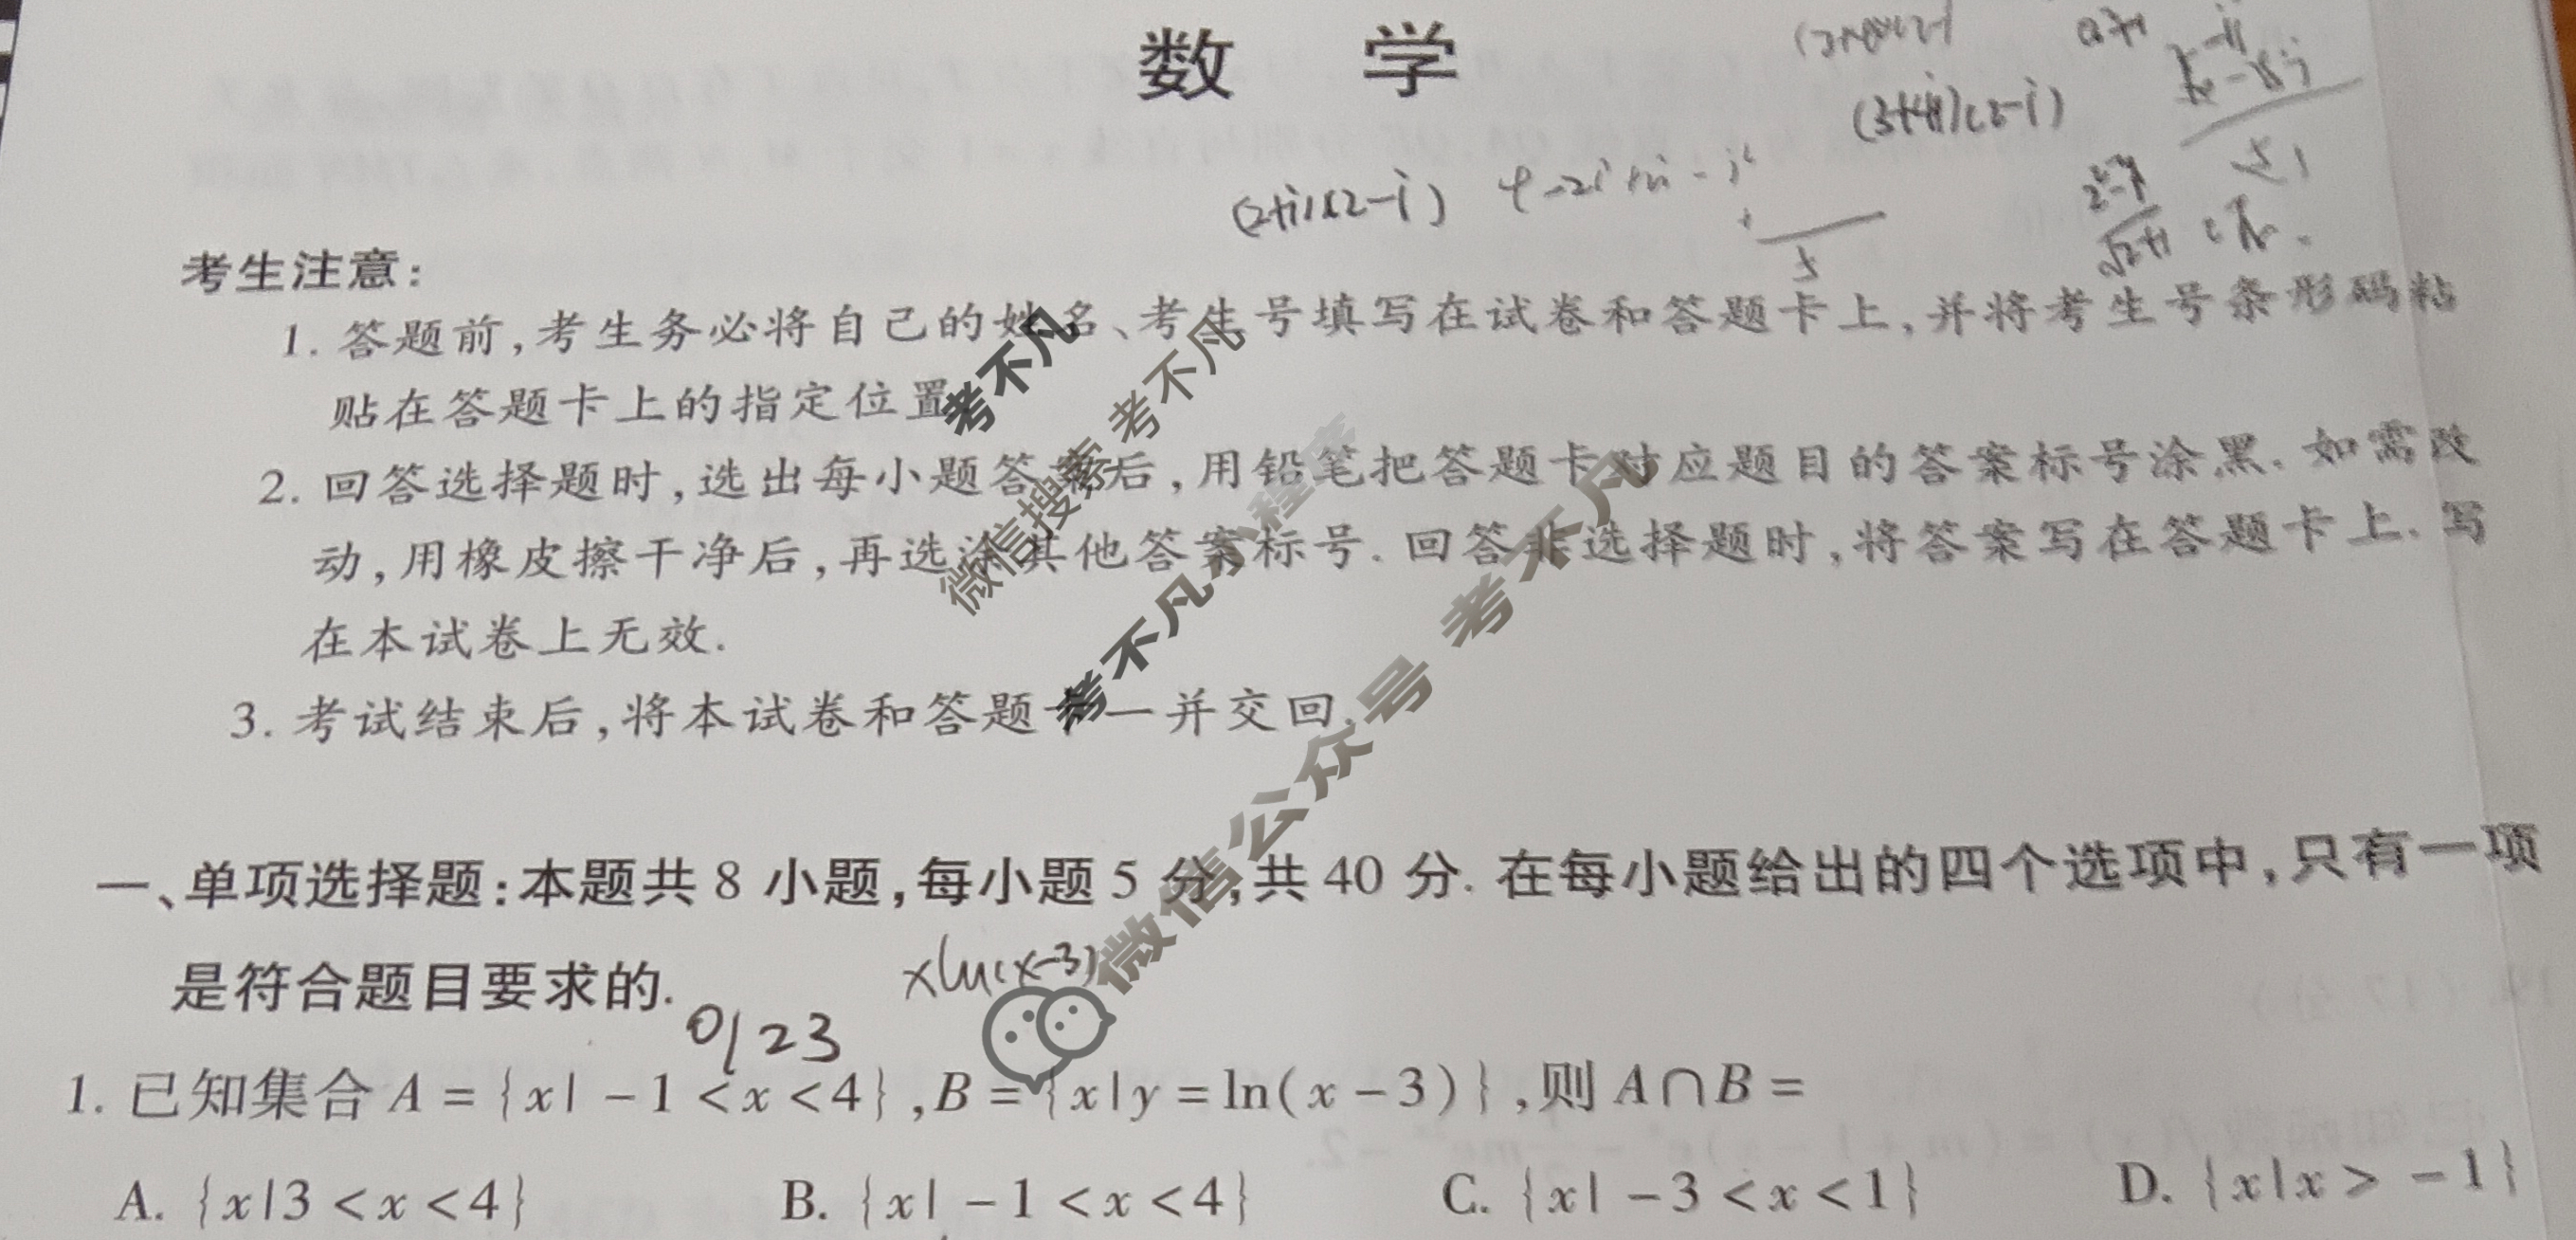 数 学
(3+4i)(2-i)
(2+i)(2-i) 4-2i+2i-i²
5
5
考生注意:
1. 答题前,考生务必将自己的姓名、考生号填写在试卷和答题卡上,并将考生号条形码粘
贴在答题卡上的指定位置
2. 回答选择题时,选出每小题答案后,用铅笔把答题卡对应题目的答案标号涂黑. 如需改
动,用橡皮擦干净后,再选涂其他答案标号. 回答非选择题时,将答案写在答题卡上. 写
在本试卷上无效.
3. 考试结束后,将本试卷和答题卡一并交回.
考不凡
微信搜索 考不凡
考不凡小程序
微信公众号 考不凡
一、单项选择题:本题共 8 小题,每小题 5 分,共 40 分. 在每小题给出的四个选项中,只有一项
是符合题目要求的.
xln(x-3)
0123
1. 已知集合 A = {x| -1 < x < 4},B = {x|y = ln(x-3)},则 A∩B =
A. {x|3 < x < 4} B. {x| -1 < x < 4} C. {x| -3 < x < 1} D. {x|x > -1}